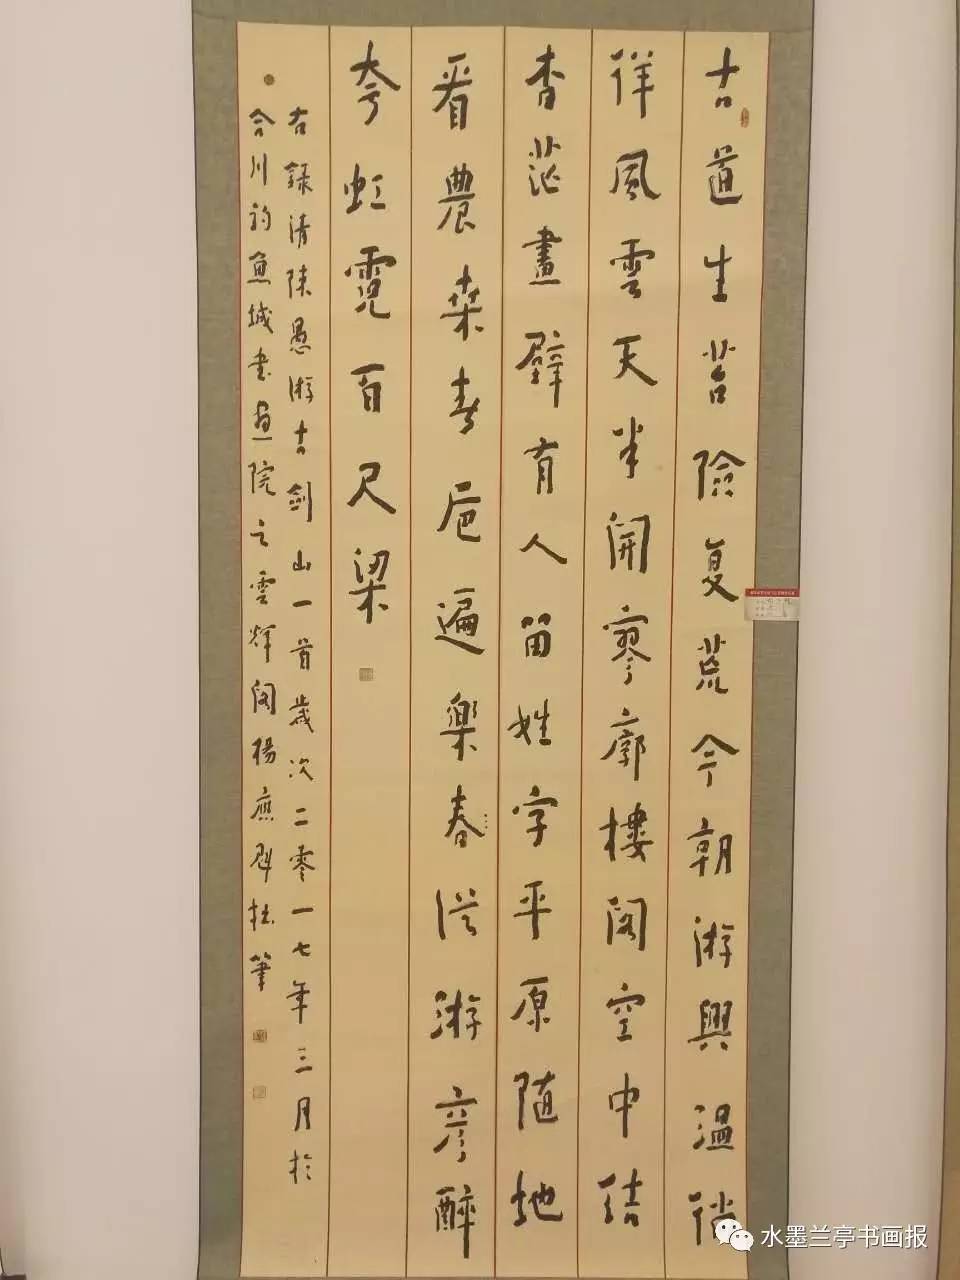 古道生苔险复荒今朝游兴温徜
徉风云天半开寥廓楼阁空中结
杳茫画壁有人留姓字平原随地
看农桑寿卮遍乐春从游彦醉
夸虹霓百尺梁
右录清陈愚游古剑山一首岁次二零一七年三月于
合川钓鱼城书画院之云辉阁杨应群拙笔
水墨兰亭书画报